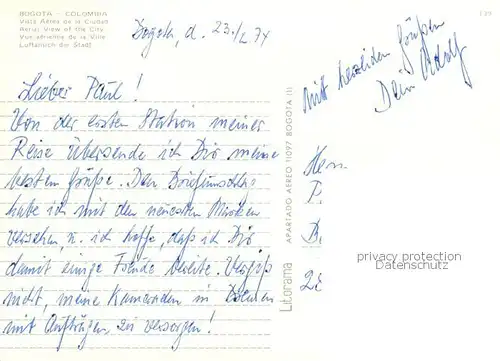 BOGOTA - COLOMBIA
Vista Aérea de la Ciudad
Aerial View of the City
Vue aérienne de la Ville
Luftansicht der Stadt
Bogota, d. 23./2. 74
Lieber Paul!
Von der ersten Station meiner
Reise übersende ich Dir meine
besten Grüße. Den Briefumschlag
habe ich mit den neuesten Marken
versehen, u. ich hoffe, daß ich Dir
damit einige Freude bereite. Vergiß
nicht, meine Kameraden in
mit Aufträgen zu versorgen!
mit herzlichen Grüßen
Dein Adolf
Litorama
APARTADO AEREO 11097 BOGOTA (1)
Herrn
P.
privacy protection
Datenschutz
28